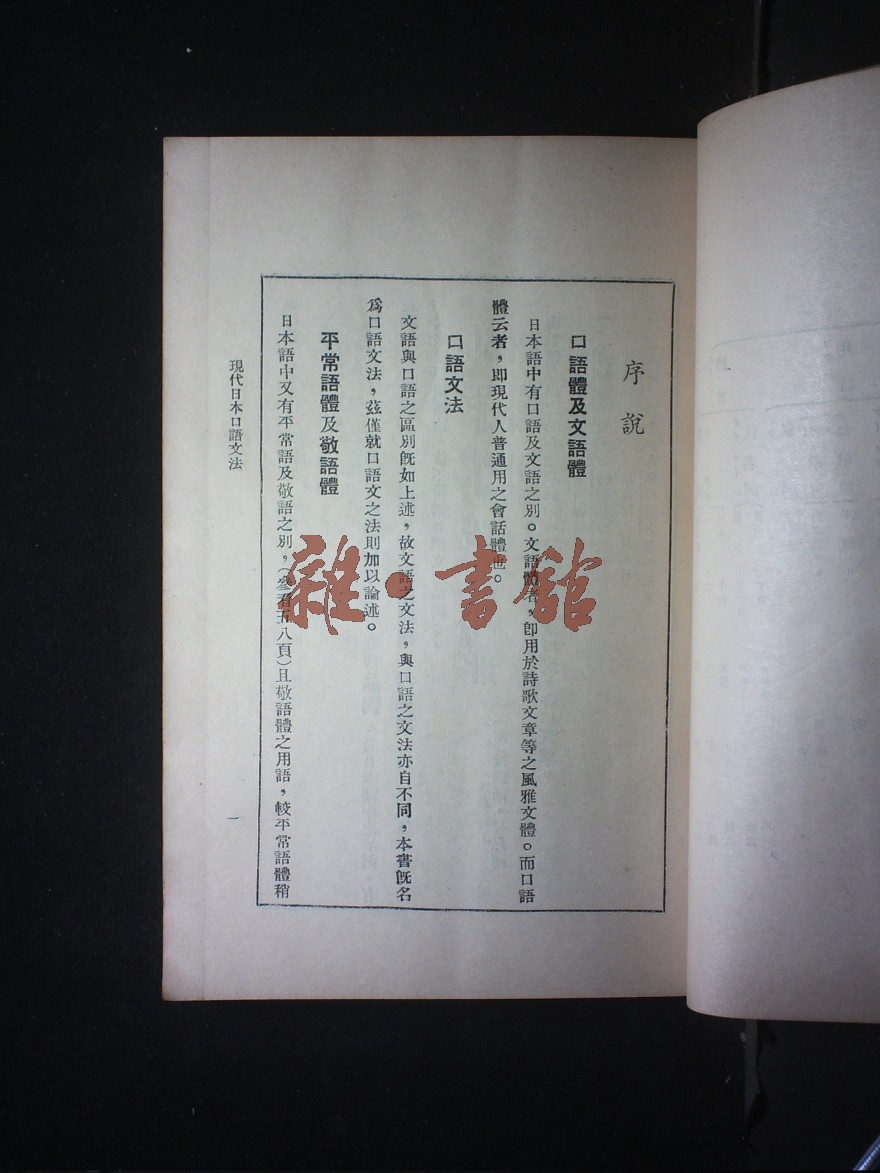 序說
口語體及文語體
日本語中有口語及文語之別。文語體者，卽用於詩歌文章等之風雅文體。而口語
體云者，卽現代人普通用之會話體也。
口語文法
文語與口語之區別旣如上述，故文語之文法，與口語之文法亦自不同，本書旣名
爲口語文法，玆僅就口語文之法則加以論述。
平常語體及敬語體
日本語中又有平常語及敬語之別，（參看五八頁）且敬語體之用語，較平常語體稍
現代日本口語文法
一
雜·書館